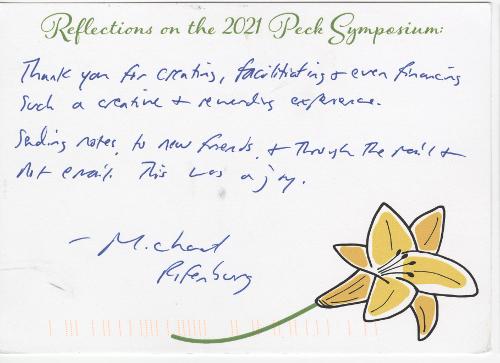 Reflections on the 2021 Peck Symposium:
Thank you for creating, facilitating + even financing
such a creative + rewarding experience.
Sending notes, to new friends, + through the mail +
not email. This was a joy.
- Michael
Rifenburg